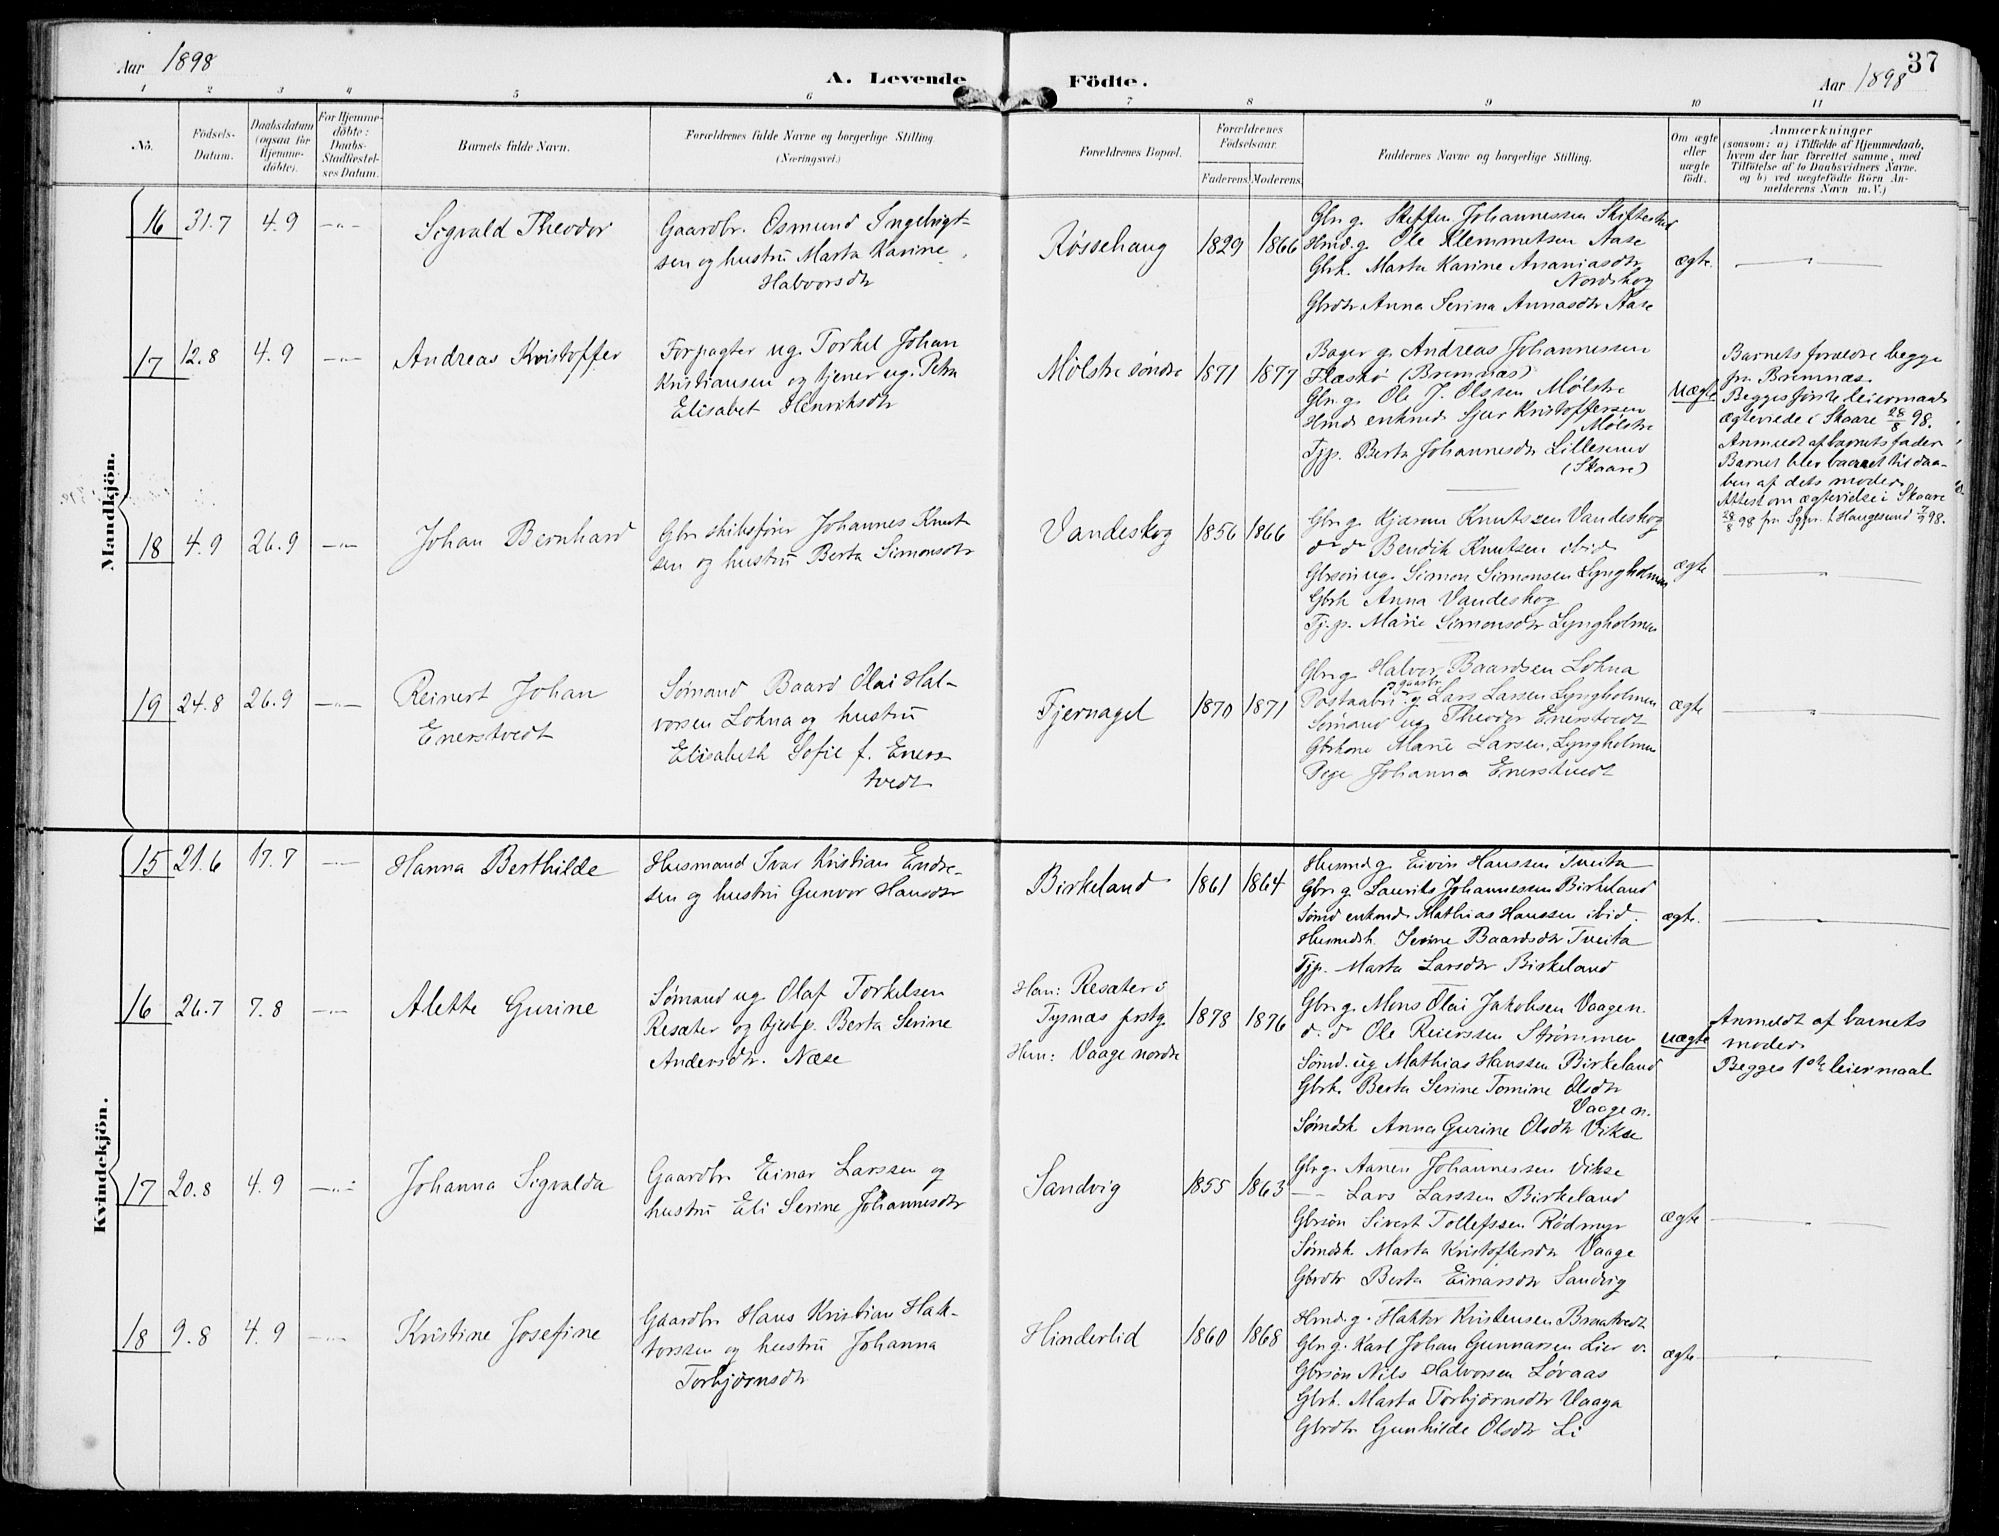 Aar 1898
A. Levende Födte.
Aar 1898
37
1 2 3 4 5 6 7 8 9 10 11
No.
Födsels-Datum.
Daabsdatum (ogsaa for Hjemme-döbte).
For Hjemme-döbte: Daabs-Stadfæstel-ses Datum.
Barnets fulde Navn.
Forældrenes fulde Navne og borgerlige Stilling (Næringsvei.)
Forældrenes Bopæl.
Forældrenes Födselsaar.
Faderens Moderens
Faddernes Navne og borgerlige Stilling.
Om ægte eller uægte födt.
Anmærkninger
(saasom: a) i Tilfælde af Hjemmedaab,
hvem der har forrettet samme, med
Tilföielse af to Daabsvidners Navne,
og b) ved uægtefödte Börn An-
melderens Navn m. V.)
Mandkjön.
16 31.7 4.9 —"—
Sigvald Theodor
Gaardbr. Osmund Ingebrigt-
sen og hustru Marta Karine
Halvorsdtr
Røssehaug 1829 1866
Gbr. g. Steffen Johannessen Skiftestad
Hmd. g. Ole Klemmetsen Aase
Gbrk. Marta Karine Ananiasdtr
Nordskog
Gbrdtr Anna Serina Annasdtr Aase
ægte. —"—
17 12.8 4.9 —"—
Andreas Kristoffer
Forpagter ug. Torkel Johan
Kristiansen og tjener ug. Petra
Elisabet Henriksdtr
Mølstre søndre 1871 1877
Bager g. Andreas Johannessen
Flæskø (Bremnæs)
Gbr. g. Ole J. Olssen Mølstre
Hmd. enkmd. Sjur Kristoffersen
Mølstre
Tjp. Berta Johannesdtr Lillesund
(Skaare)
uægte
Barnets forældre begge
fra Bremnæs.
Begges første leiermaal
ægteviede i Skaare 28/8 98.
Anmeldt af barnets fader
Barnet blev baaret til daa-
ben af dets moder
Attest om ægtevielse i Skaare
28/8 98 fra Sgpr. i Haugesund 7/9 98.
18 4.9 26.9 —"—
Johan Bernhard
Gbr. skibsfører Johannes Knut-
sen og hustru Berta Simonsdtr
Vandeskog 1856 1866
Gbr. g. Knutsen Vandeskog
d° d° Bendik Knutsen ibid
Gbrsøn ug. Simon Simonsen Lyngholmen
Gbrk Anna Vandeskog
Tj.p. Marie Simonsdtr Lyngholmen
ægte —"—
19 24.8 26.9 —"—
Reinert Johan
Enerstvedt
Sømand Baard Olai Hal-
vorsen Lokna og hustru
Elisabeth Sofie f. Eners-
tvedt
Tjernagel 1870 1871
Gbr. g. Halvor Baardsen Lokna
g. Lars Larsen Lyngholmen
Sømand ug. Theodor Enerstvedt
Gbrkone Marie Larsen, Lyngholmen
Pige Johanna Enerstvedt
ægte —"—
Kvindekjön.
15 21.6 17.7 —"—
Hanna Berthilde
Husmand Ivar Kristian Endre-
sen og hustru Gunvor Hansdtr
Birkeland 1861 1864
Husmd. g. Eivin Hanssen Tveita
Gbr. g. Laurits Johannessen Birkeland
Sømd enkmd. Mathias Hanssen ibid.
Husmdsk. Serine Baardsdtr Tveita
Tjp. Marta Larsdtr Birkeland
ægte. —"—
16 26.7 7.8 —"—
Alette Gurine
Sømand ug. Olaf Torkelsen
Resæter og tjenp. Berta Serine
Andersdtr. Næse
Han: Resæter i
Tysnæs prstg.
Hun: Vaage nordre
1878 1876
Gbr. g. Mons Olai Jakobsen Vaage n.
d. d° Ole Reierssen Strømmen
Sømd. ug Mathias Hanssen Birkeland
Gbrk. Berta Serine Tomine Olsdtr
Vaage n.
Sømdsk Anna Gurine Olsdtr Vikse
uægte
Anmeldt af barnets
moder
Begges 1ste leiermaal
17 20.8 4.9 —"—
Johanna Sigvalda
Gaardbr. Einar Larssen og
hustru Eli Serine Johannesdtr
Sandvig 1855 1863
Gbr. g. Aanen Johannessen Vikse
—"— Lars Larssen Birkeland
Gbrsøn Sivert Tollefssen Rødmyr
Sømdsk. Marta Kristoffersdtr Vaage
Gbrdtr Berta Einarsdtr Sandvig
ægte —"—
18 9.8 4.9 —"—
Kristine Josefine
Gaardbr. Hans Kristian Hak-
torssen og hustru Johanna
Torbjørnsdtr
Hinderlid 1860 1868
Hmd. g. Haktor Kristensen Braatvedt
Gbr. g. Karl Johan Gunnarsen Lier v.
Gbrsøn Nils Halvorsen Løvaas
Gbrk. Marta Torbjørnsdtr Vaaga
Gbrdtr Gunhilde Olsdtr Li
ægte —"—